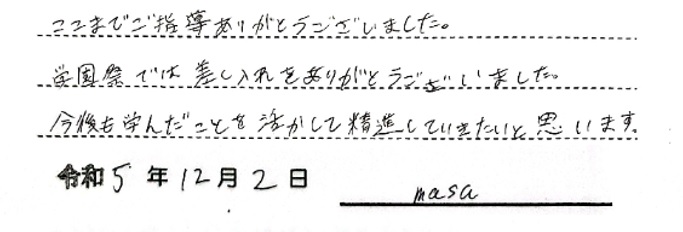 ここまでご指導ありがとうございました。
学園祭では差し入れをありがとうございました。
今後も学んだことを活かして精進していきたいと思います。
令和5年12月2日
masa